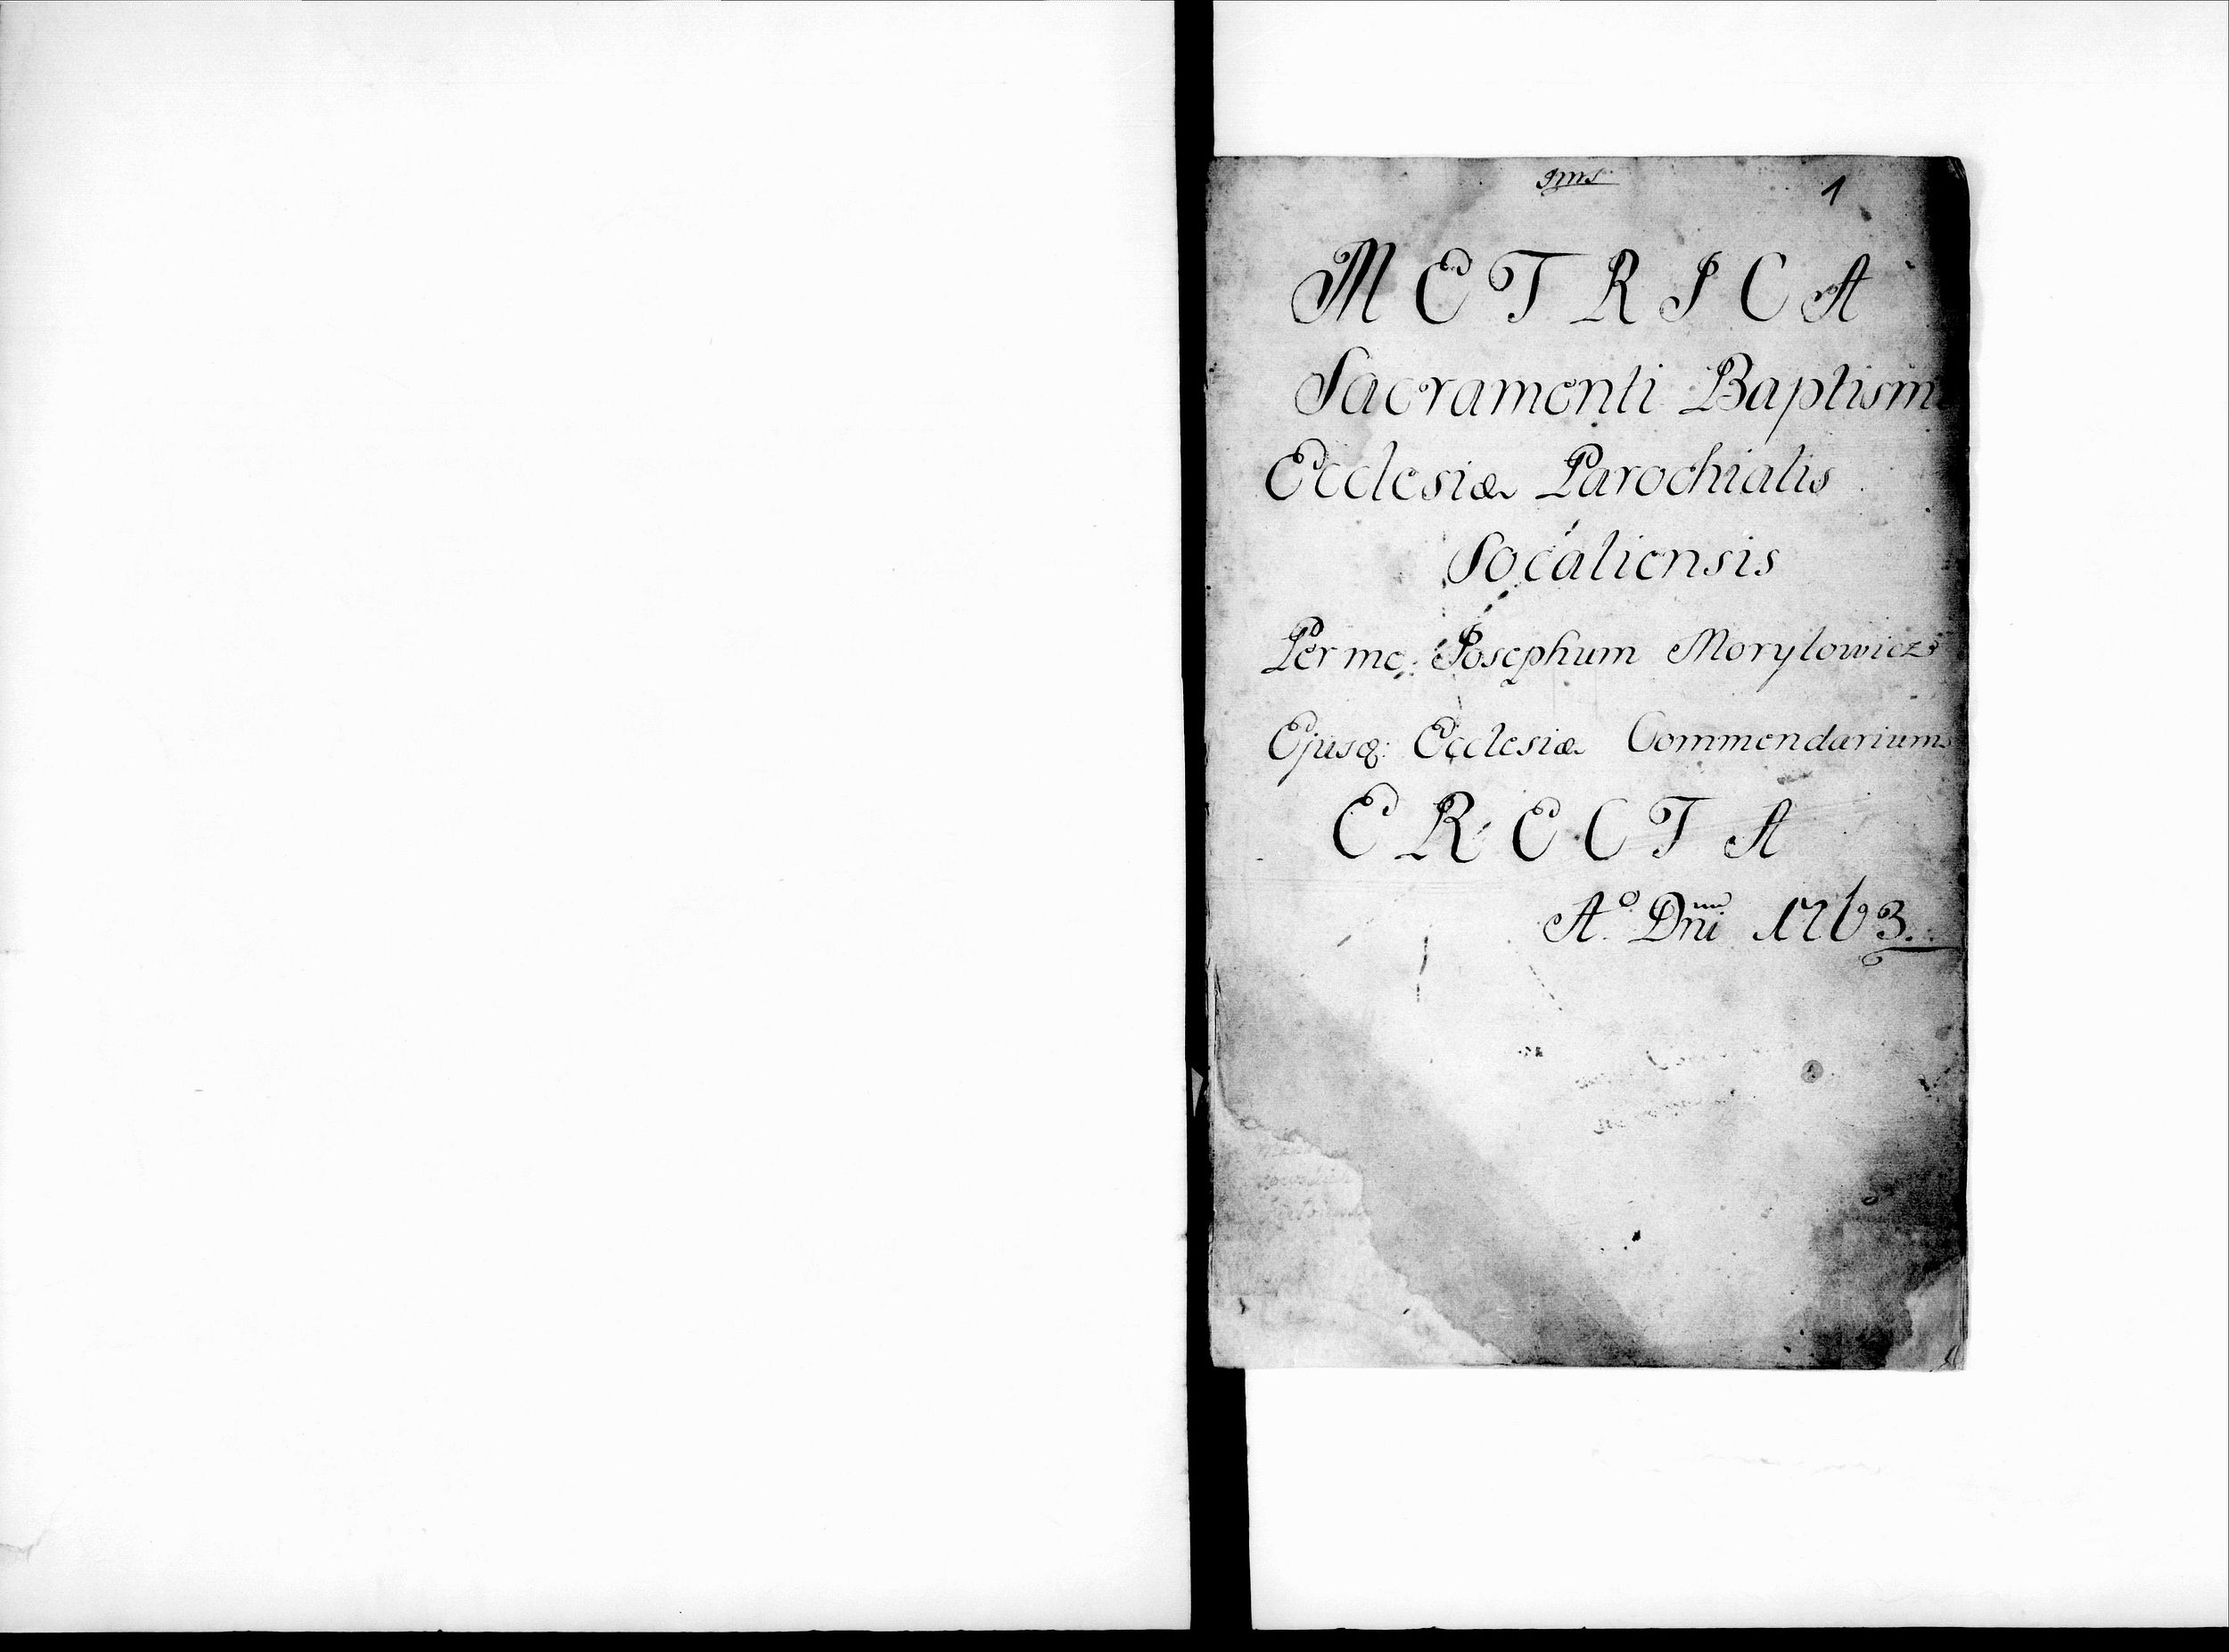 1
METRICA
Sacramenti Baptism
Ecclesiæ Parochialis
Socaliensis
Per me Josephum Morylowicz
Ejusq: Ecclesiæ Commendarium
ERECTA
Aº Dni 1763.